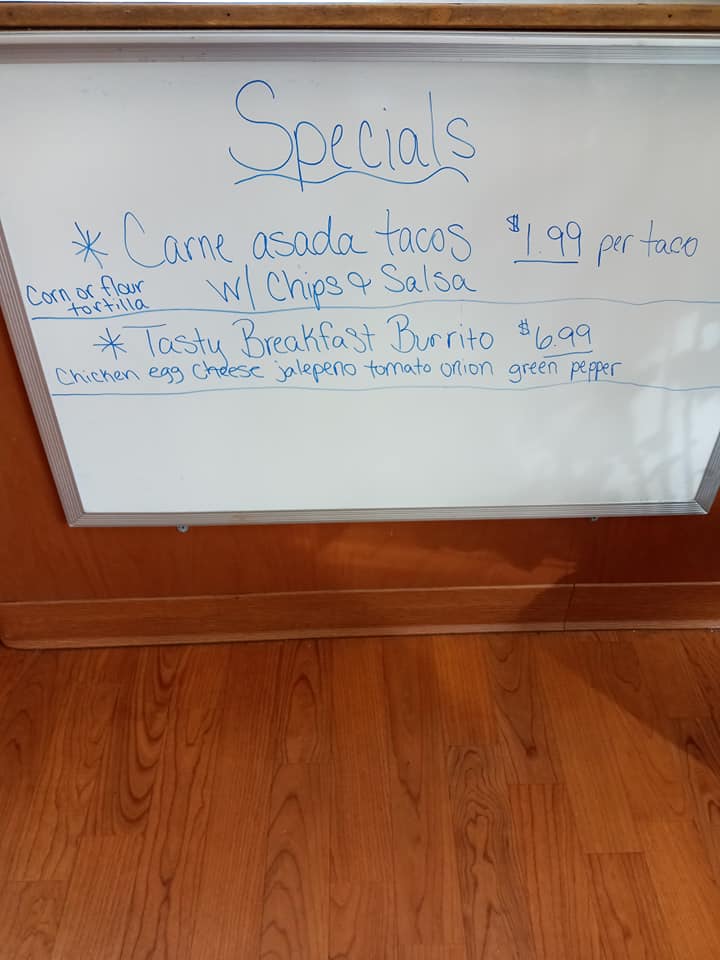 Specials
* Carne asada tacos $1.99 per taco
Corn or flour tortilla
w/ Chips & Salsa
* Tasty Breakfast Burrito $6.99
Chicken egg cheese jalepeno tomato onion green pepper